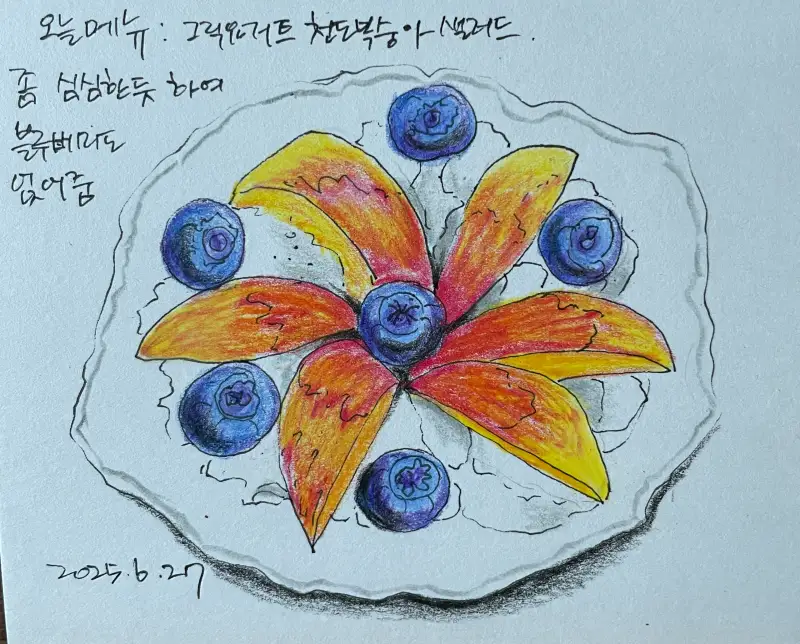 오늘메뉴 : 그릭요거트 천도복숭아 샐러드.
좀 심심한듯 하여
블루베리도
얹어줌
2025.6.27